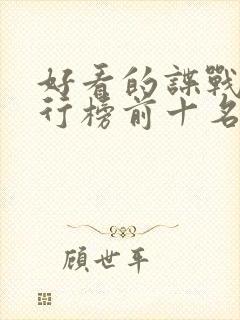 好看的諜戰
行榜前十名
顾世年